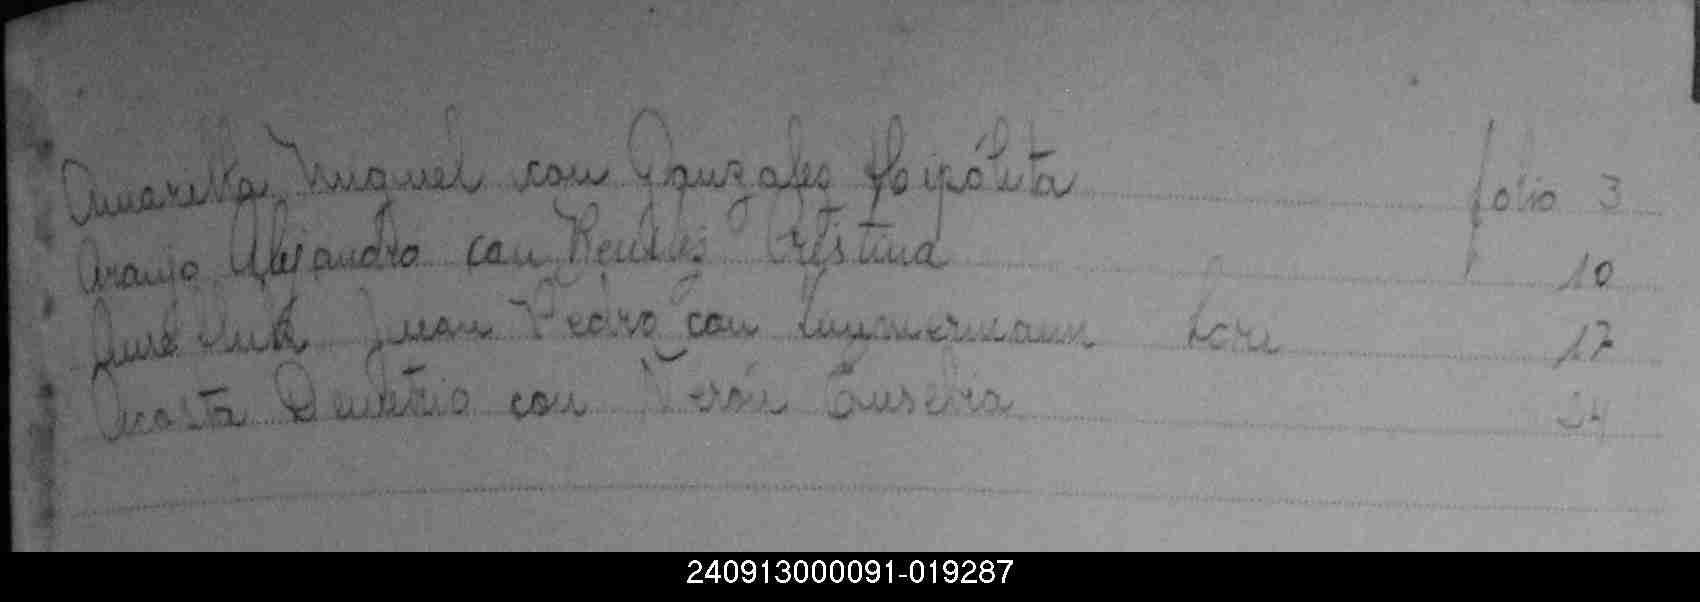 Amarilla Miguel con Gonzales Hoipólita folio 3
Araujo Alejandro con Cristina 10
Juan Pedro con 17
Acosta Demetrio con Verón Eusebia 24
240913000091-019287